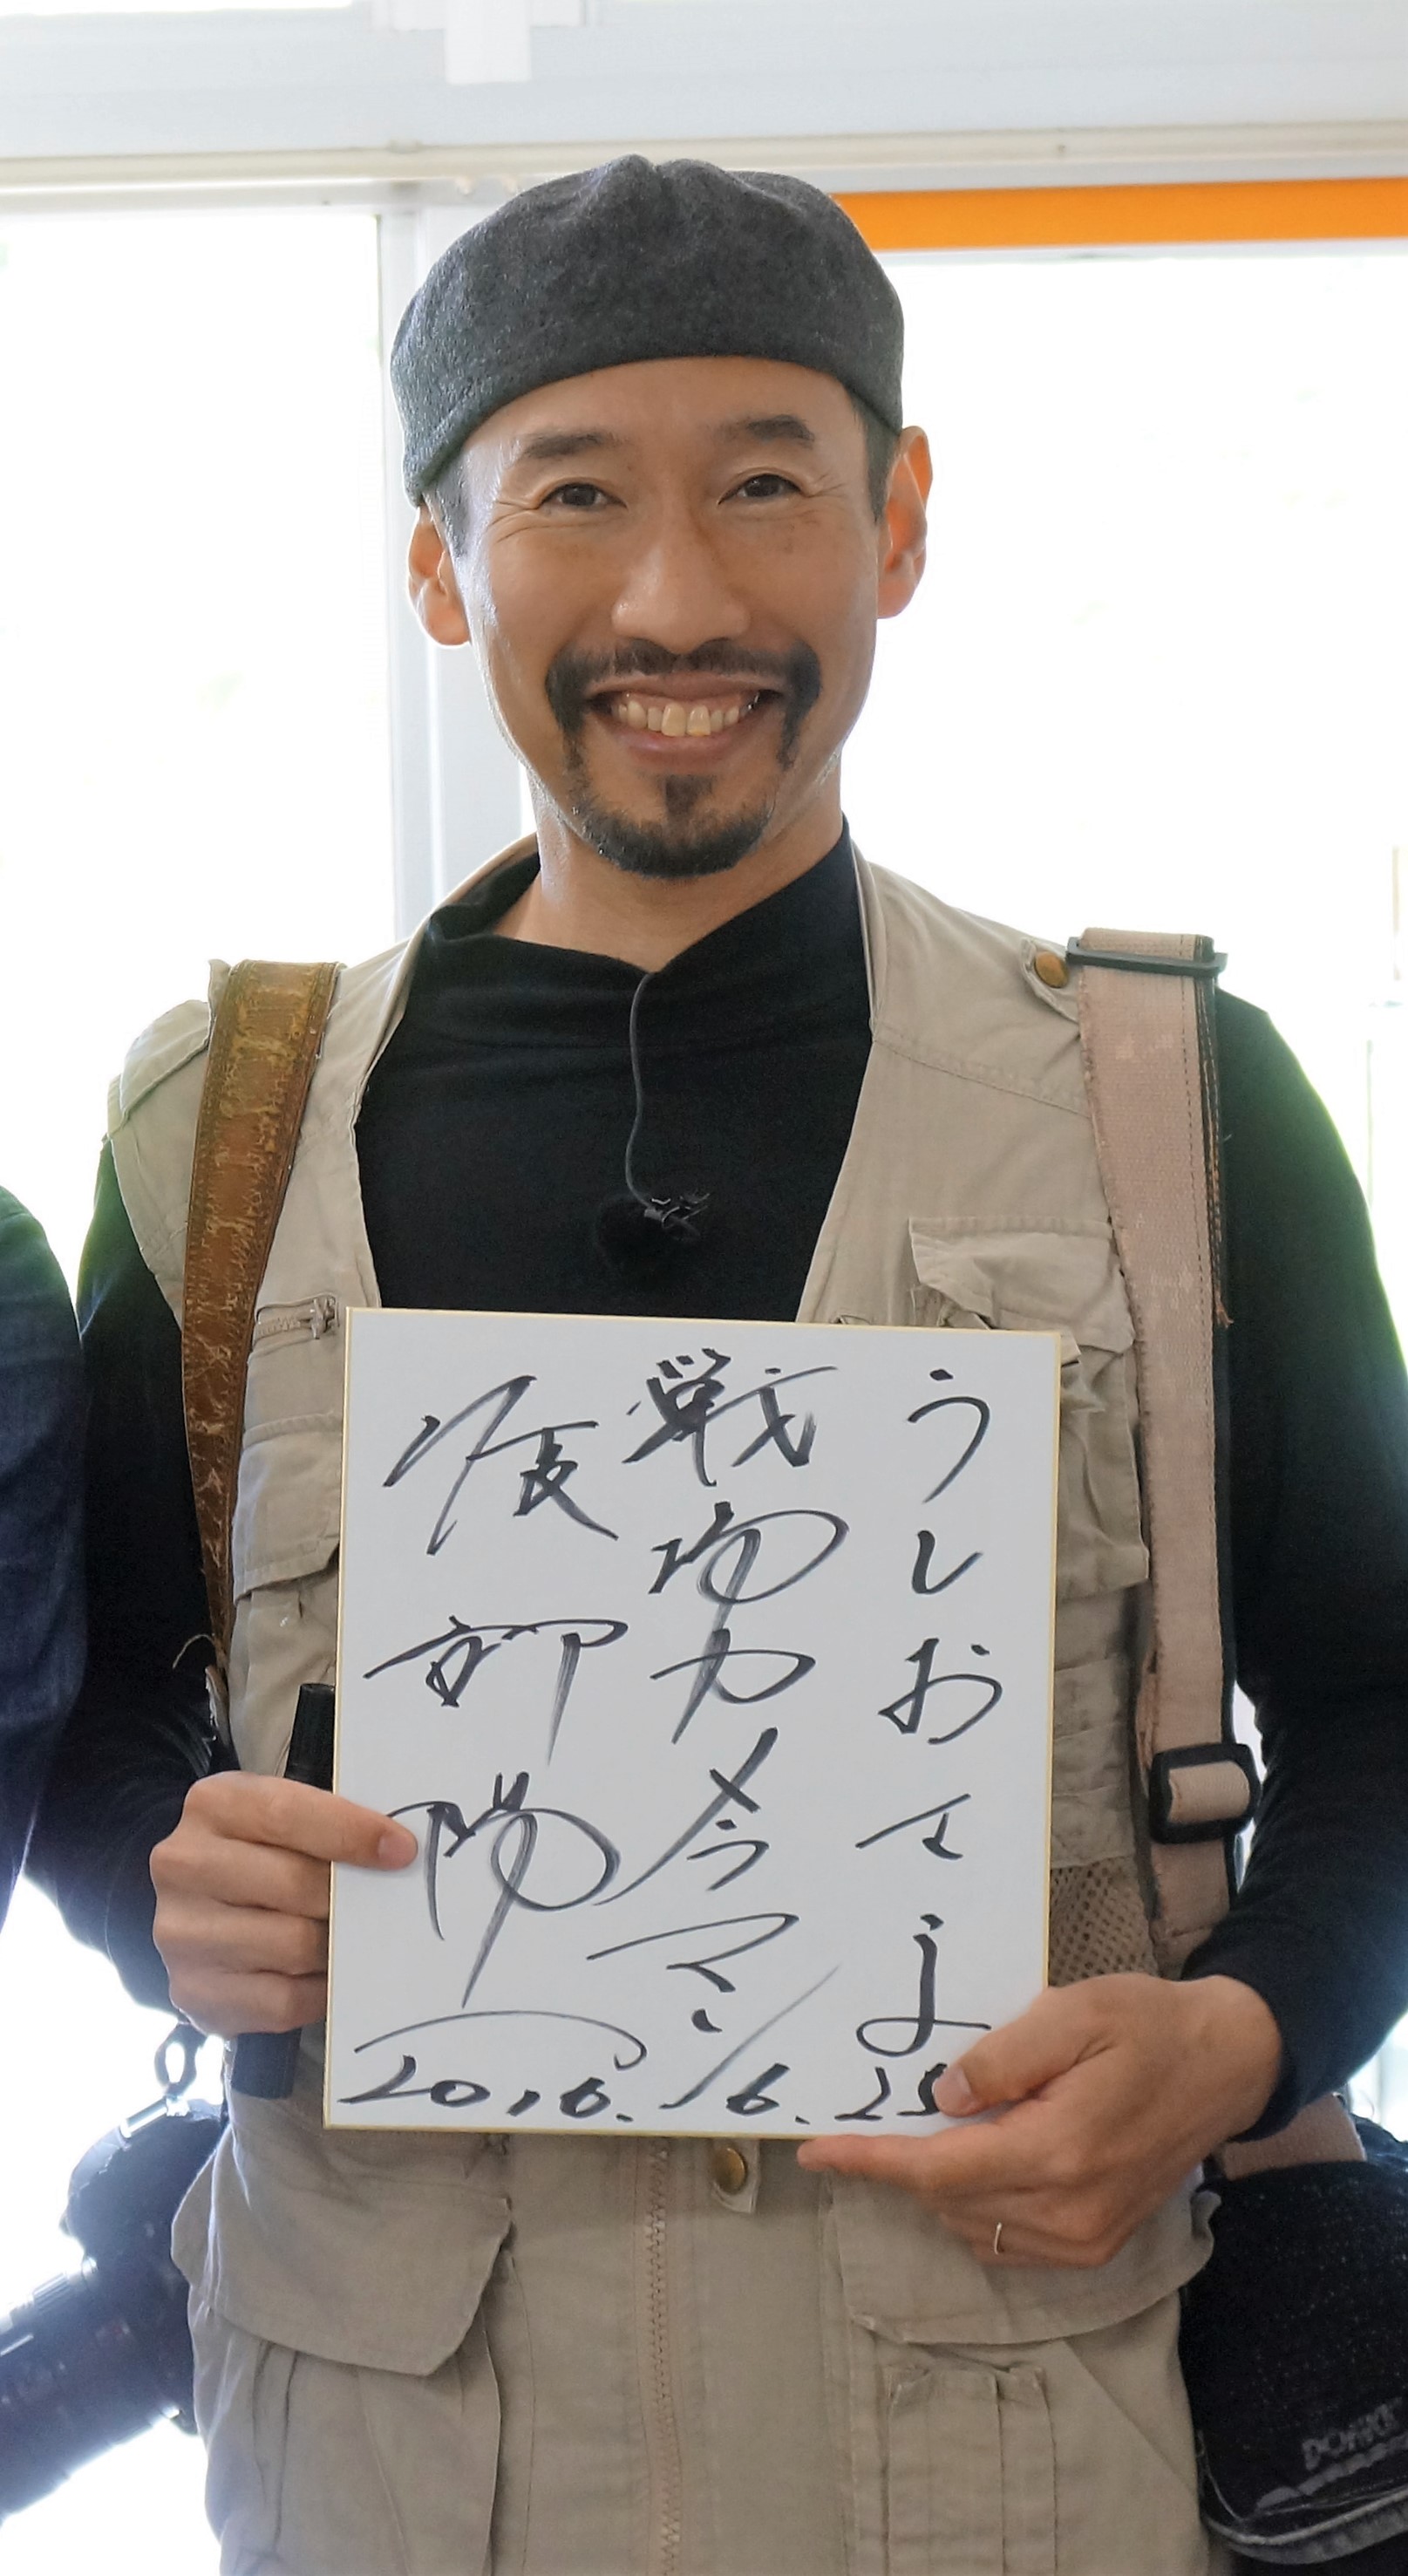 うしおさま
戦場カメラマン
渡部陽一
2016.6.25
DOMKE